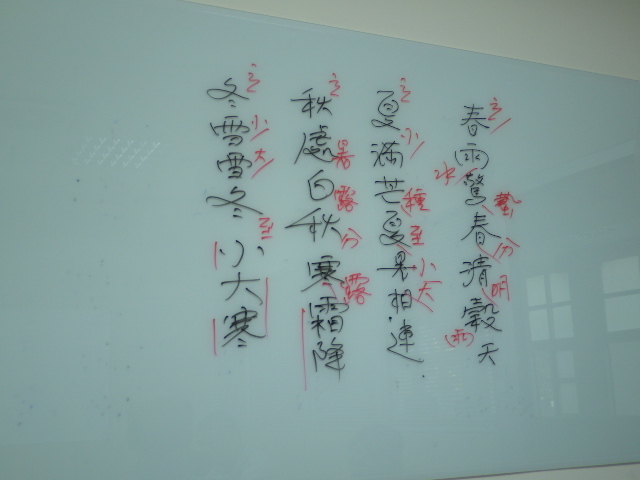 春雨驚春清穀天
立水蟄分明雨
夏滿芒夏暑相連
立小種至小大
秋處白秋寒霜降
立暑露分露
冬雪雪冬小大寒
立小大至